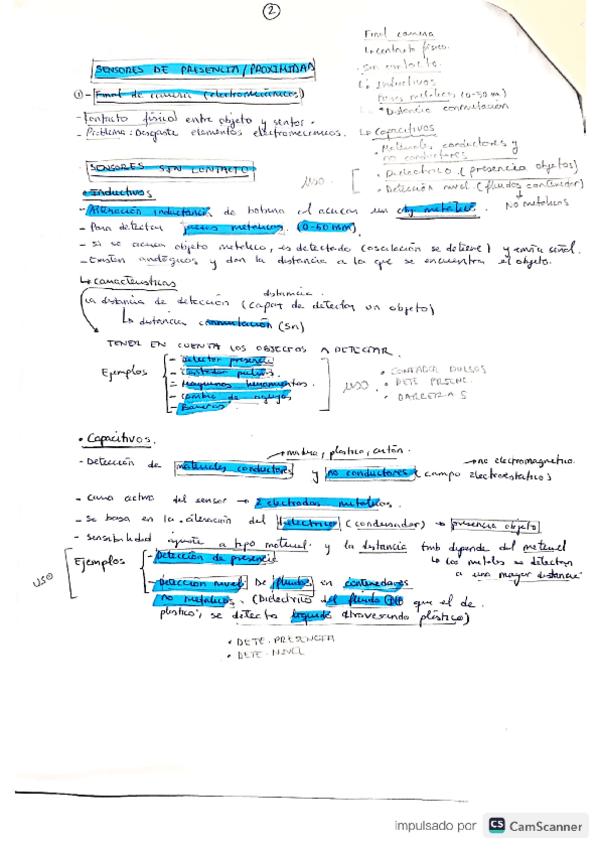 2
Final carrera
↳ contacto físico.
. Sin contacto.
↳ Inductivos
Piezas metálicas (0-50 m)
* Distancia conmutación
↳ Capacitivos
• Materiales conductores y
no conductores
• Dielectrico (presencia objetos)
• Detección nivel (fluidos contenedor)
↓
No metalicos
USO
SENSORES DE PRESENCIA/PROXIMIDAD
① - Final de carrera (electromecánicos)
- Contacto físico entre objeto y sensor.
- Problema: Desgaste elementos electromecanicos.
SENSORES SIN CONTACTO
• Inductivos
- Alteración inductancia de bobina al acercar un obj. metalico.
- Para detectar piezas metalicas. (0-50 mm)
- Si se acerca objeto metalico, es detectado (oscilación se detiene) y envia señal.
- Existen analógicos y dan la distancia a la que se encuentra el objeto.
↳ Caracteristicas
distancia
La distancia de detección (capaz de detectar un objeto)
↳ distancia conmutación (Sn)
TENER EN CUENTA LOS OBJECTOS A DETECTAR.
Ejemplos
- Detector presencia
- Contador pulsos.
- Maquinas herramientas.
- Cambio de agujas
- Barreras
USO
• CONTADOR PULSOS
• DETE PRESENC.
• BARRERAS
• Capacitivos.
→ madera, plastico, cartón.
→ no electromagnetico.
- Detección de materiales conductores y no conductores (campo electroestatico)
- Cara activa del sensor → 2 electrodos metalicos.
- Se basa en la alteración del dielectrico (condensador) → presencia objeto
- sensibilidad ajuste a tipo material y la distancia tmb depende del material
↳ los metales se detectan
a una mayor distancia
USO
Ejemplos
- Detección de presencia
- Detección nivel De fluidos en contenedores
no metalicos. (Dielectrico del fluido que el de
plástico, se detecta liquido atravesando plástico)
• DETE. PRESENCIA
• DETE. NIVEL
impulsado por CS CamScanner